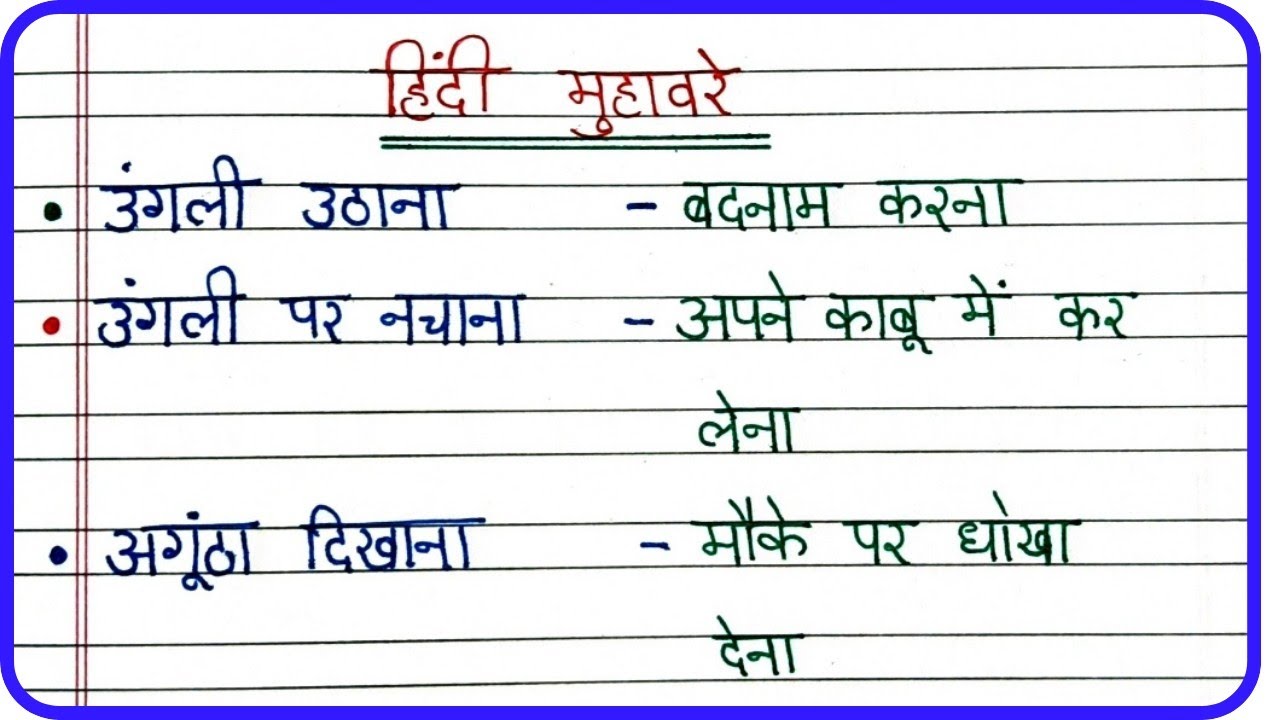 हिंदी मुहावरे
• उंगली उठाना - बदनाम करना
• उंगली पर नचाना - अपने काबू में कर
लेना
• अगूंठा दिखाना - मौके पर धोखा
देना